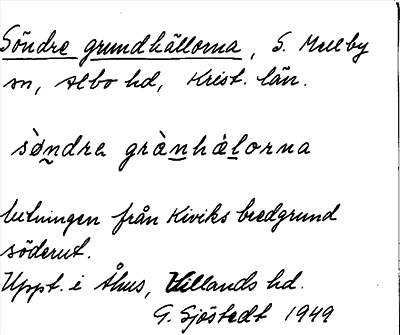 Söndre grundkällorna, S. Mellby
sn, Albo hd, Krist. län.
sø̀ndra grànhálorna
betningen från Kiviks bredgrund
söderut.
Uppt. i Åhus, Villands hd.
G. Sjöstedt 1949